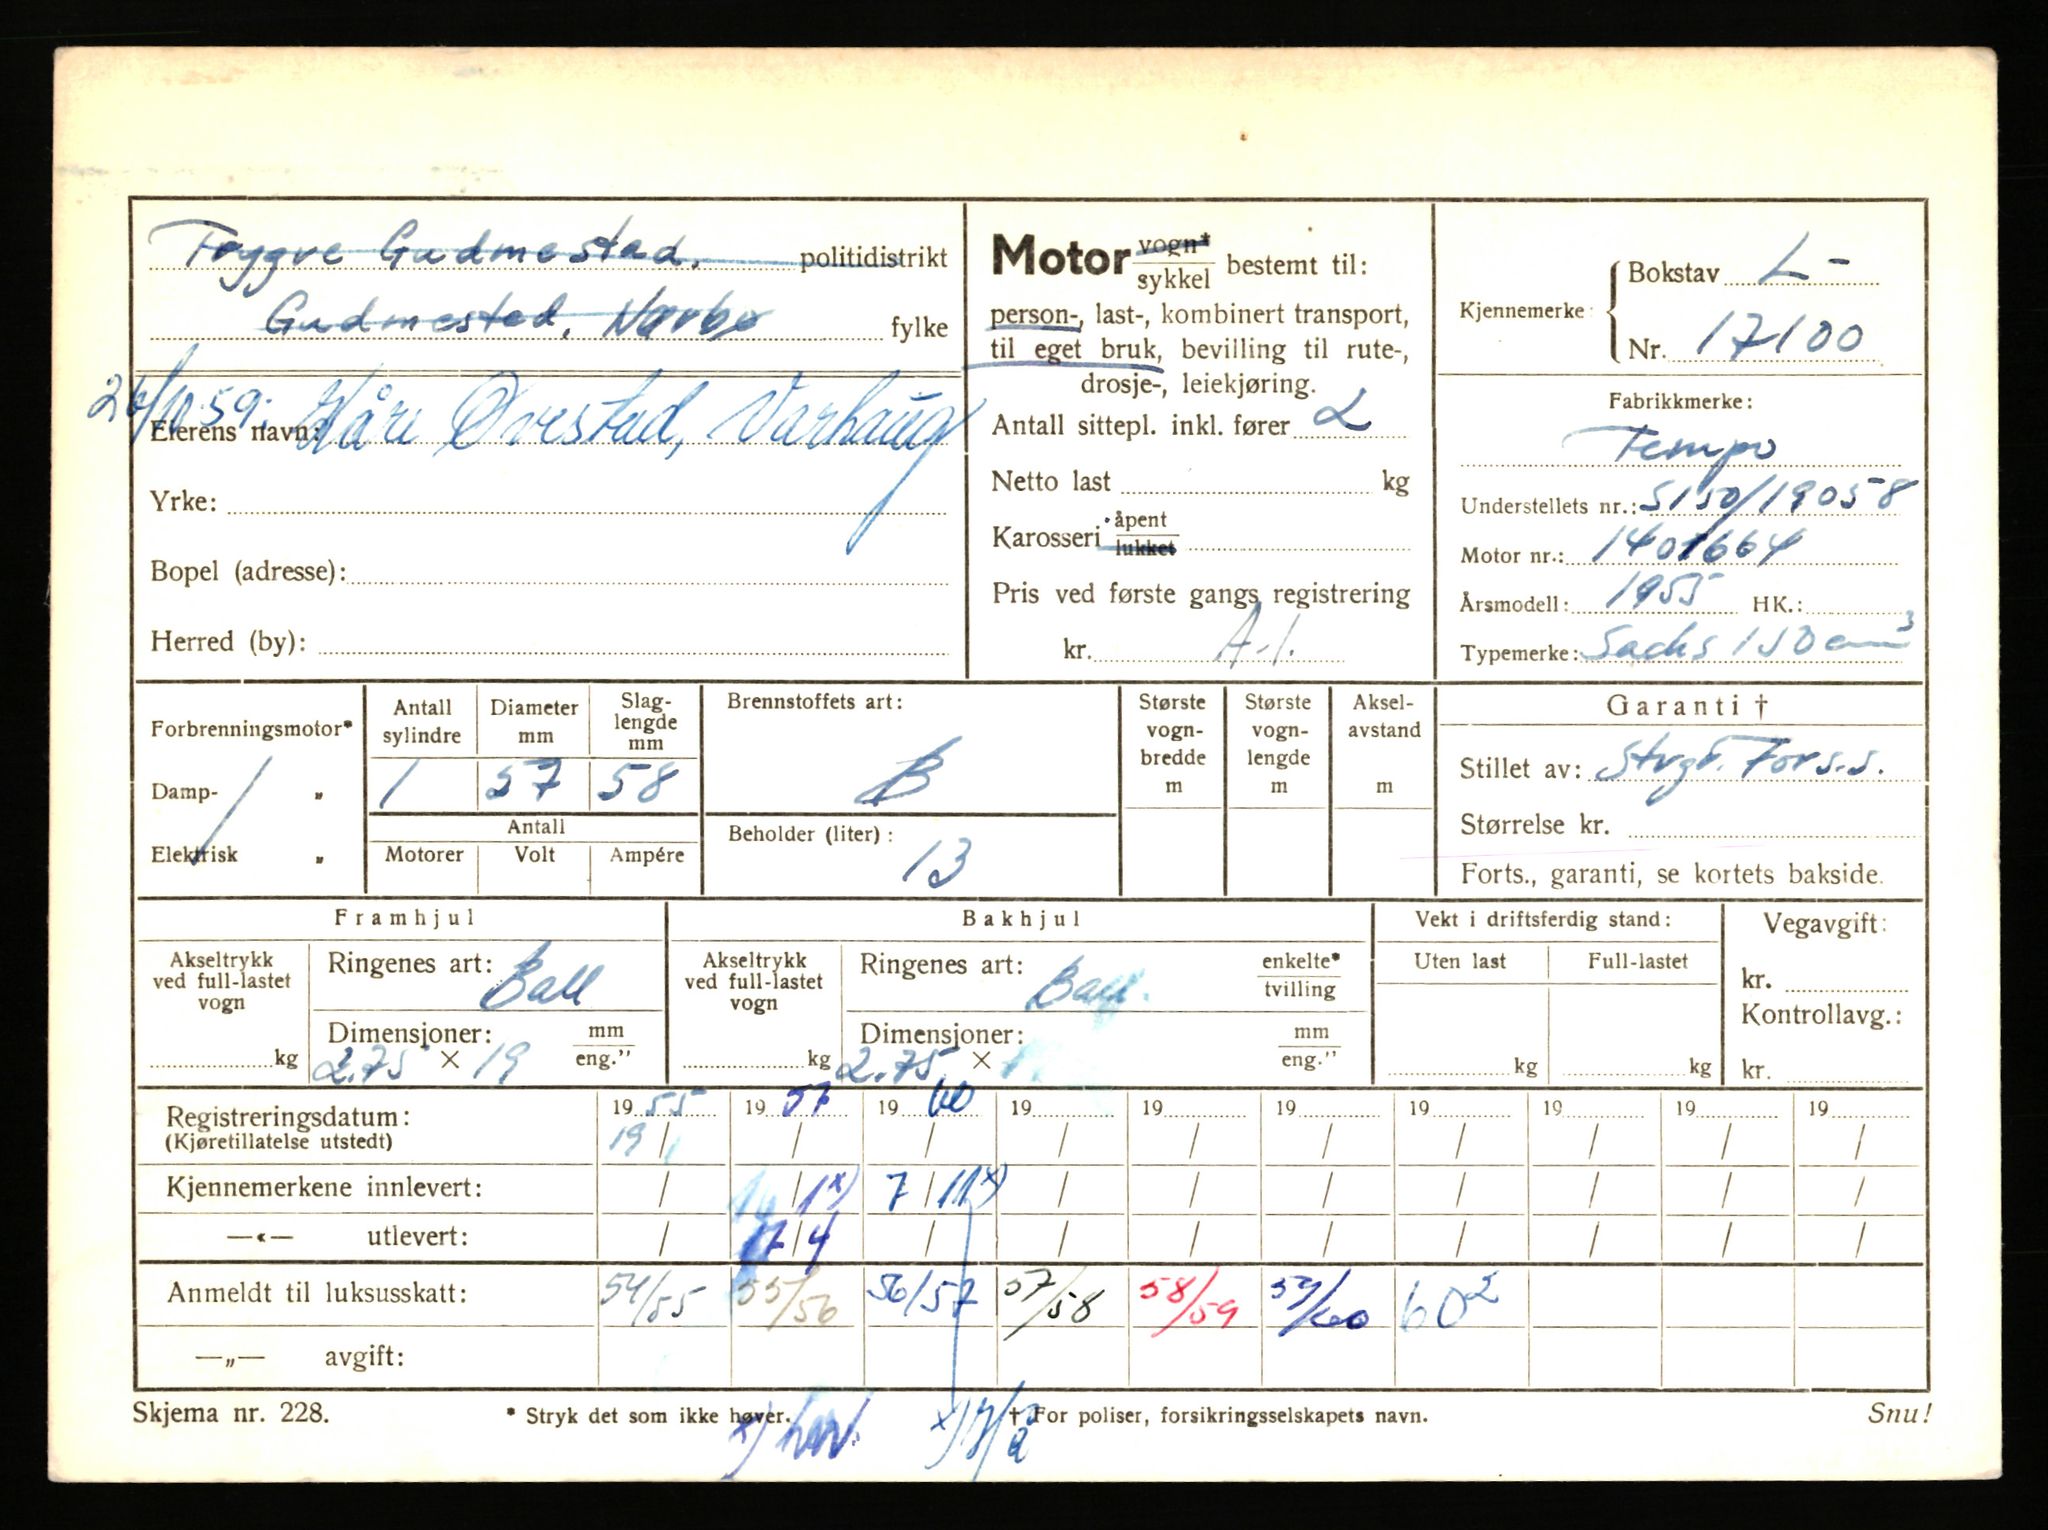 Tryggve Gudmestad, politidistrikt
Gudmestad, Nærbø fylke
26/10.59: Kåre Ovestad, Varhaug
Eierens navn:
Yrke:
Bopel (adresse):
Herred (by):
Motor vogn* sykkel bestemt til:
person-, last-, kombinert transport,
til eget bruk, bevilling til rute-,
drosje-, leiekjøring.
Antall sittepl. inkl. fører 2
Netto last kg
Karosseri åpent lukket
Pris ved første gangs registrering
kr. A.1.
Kjennemerke: Bokstav L-
Nr. 17100
Fabrikkmerke:
Tempo
Understellets nr.: 5150/19058
Motor nr.: 1401664
Årsmodell: 1955 HK.:
Typemerke: Sachs 150 cm³
Forbrenningsmotor*
Damp- „
Elektrisk „
Antall sylindre Diameter mm Slag-lengde mm
1 57 58
Antall
Motorer Volt Ampére
Brennstoffets art:
B
Beholder (liter):
13
Største vogn-bredde m
Største vogn-lengde m
Aksel-avstand m
Garanti †
Stillet av: Stvgr. Forss.
Størrelse kr.
Forts., garanti, se kortets bakside.
Framhjul
Akseltrykk ved full-lastet vogn
kg
Ringenes art: Ball
Dimensjoner: mm eng."
2.75 × 19
Bakhjul
Akseltrykk ved full-lastet vogn
kg
Ringenes art: Ball. enkelte* tvilling
Dimensjoner: mm eng."
2.75 ×
Vekt i driftsferdig stand:
Uten last Full-lastet
kg kg
Vegavgift:
kr.
Kontrollavg.:
kr.
Registreringsdatum: 1955 1957 1960 19 19 19 19 19 19 19
(Kjøretillatelse utstedt) 19/ / / / / / / / / /
Kjennemerkene innlevert: / /1x) 7/11x) / / / / / / /
—«— utlevert: / 17/4 / / / / / / / /
Anmeldt til luksusskatt: 54/55 55/56 56/57 57/58 58/59 59/60 60²
—„— avgift:
Skjema nr. 228. * Stryk det som ikke høver. † For poliser, forsikringsselskapets navn. Snu!
x) hav. x)